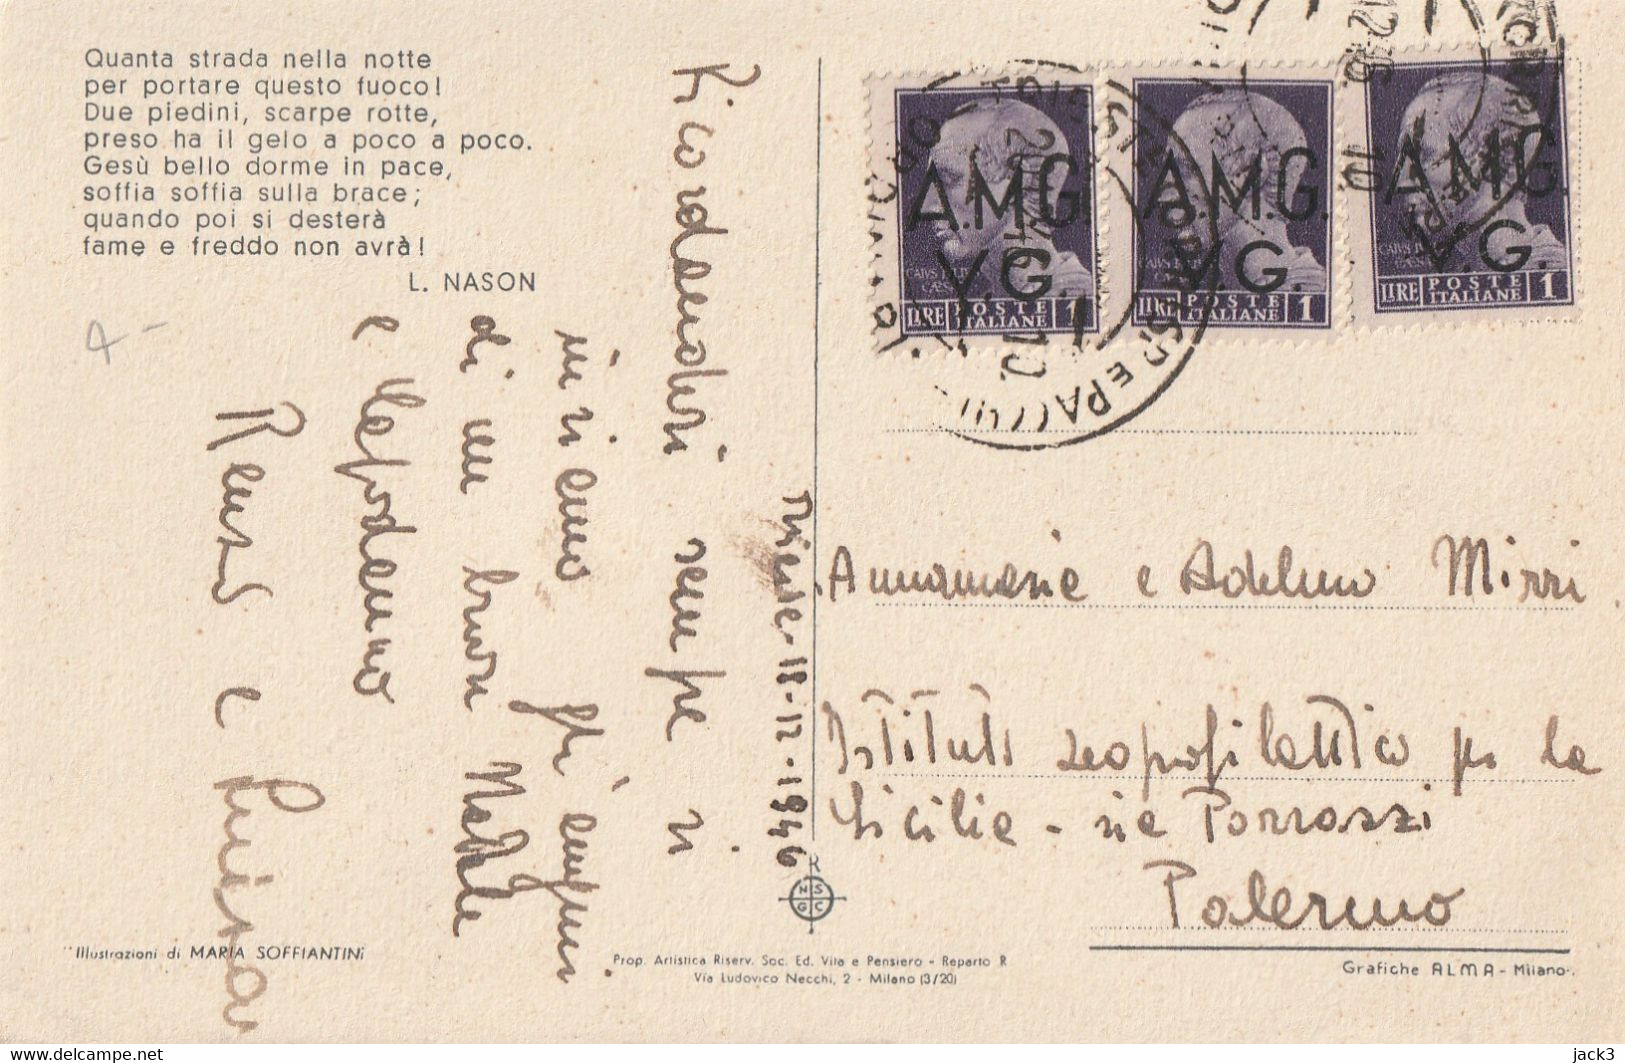 Quanta strada nella notte
per portare questo fuoco!
Due piedini, scarpe rotte,
preso ha il gelo a poco a poco.
Gesù bello dorme in pace,
soffia soffia sulla brace;
quando poi si desterà
fame e freddo non avrà!
L. NASON
Ricordandovi sempre vi
inviamo gli auguri
di un buon Natale
e Capodanno
Renzo e
Trieste 18-12-1946
A.M.G.
V.G.
LIRE POSTE ITALIANE 1
A.M.G.
V.G.
LIRE POSTE ITALIANE 1
A.M.G.
V.G.
LIRE POSTE ITALIANE 1
Annamaria e Adelmo Mirri
Istituto zooprofilattico per la
Sicilia - via Porrazzi
Palermo
R
N S
G C
Illustrazioni di MARIA SOFFIANTINI
Prop. Artistica Riserv. Soc. Ed. Vita e Pensiero - Reparto R
Via Ludovico Necchi, 2 - Milano (3/20)
Grafiche ALMA - Milano.
www.delcampe.net
jack3